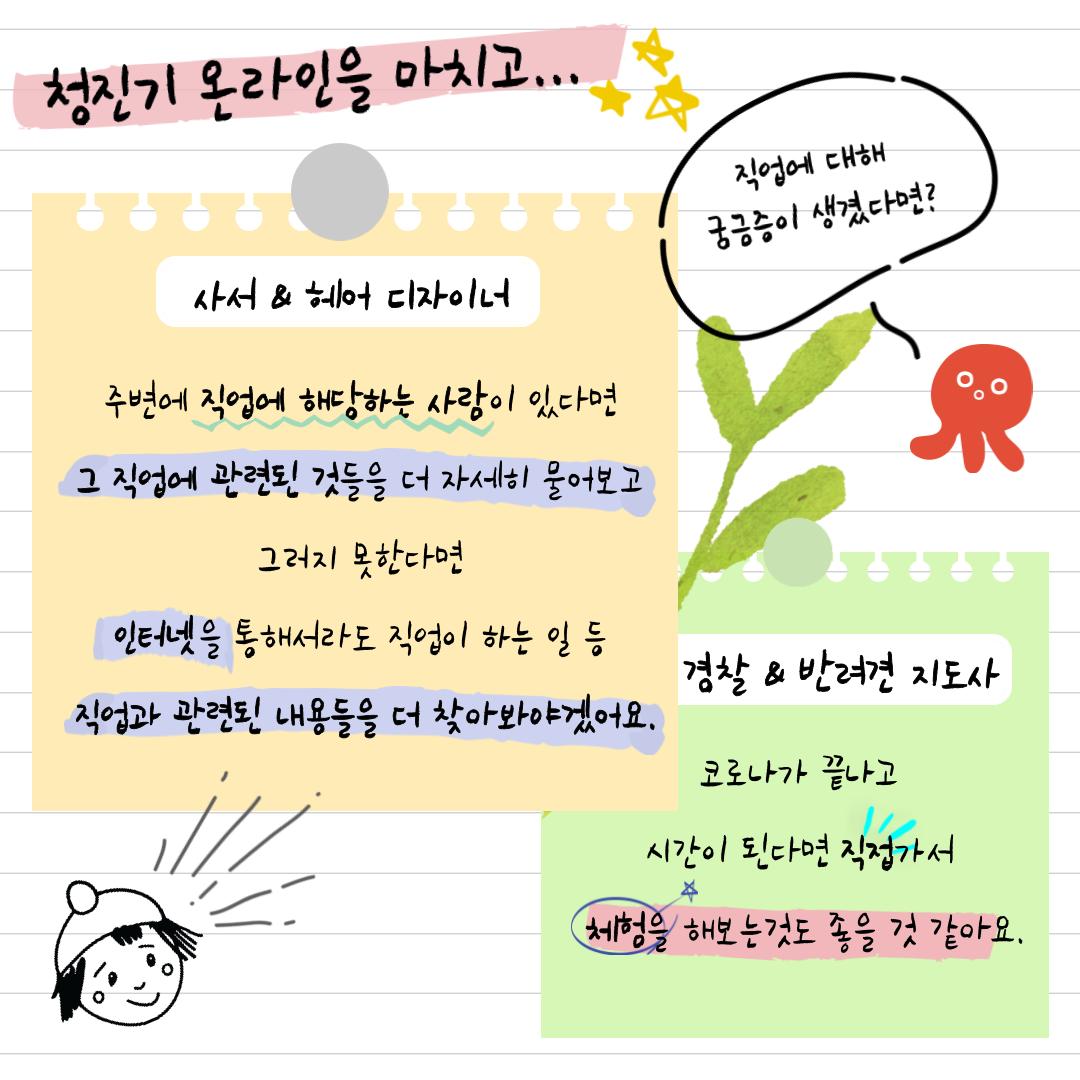 청진기 온라인을 마치고...
직업에 대해
궁금증이 생겼다면?
사서 & 헤어 디자이너
주변에 직업에 해당하는 사람이 있다면
그 직업에 관련된 것들을 더 자세히 물어보고
그러지 못한다면
인터넷을 통해서라도 직업이 하는 일 등
직업과 관련된 내용들을 더 찾아봐야겠어요.
경찰 & 반려견 지도사
코로나가 끝나고
시간이 된다면 직접가서
체험을 해보는것도 좋을 것 같아요.